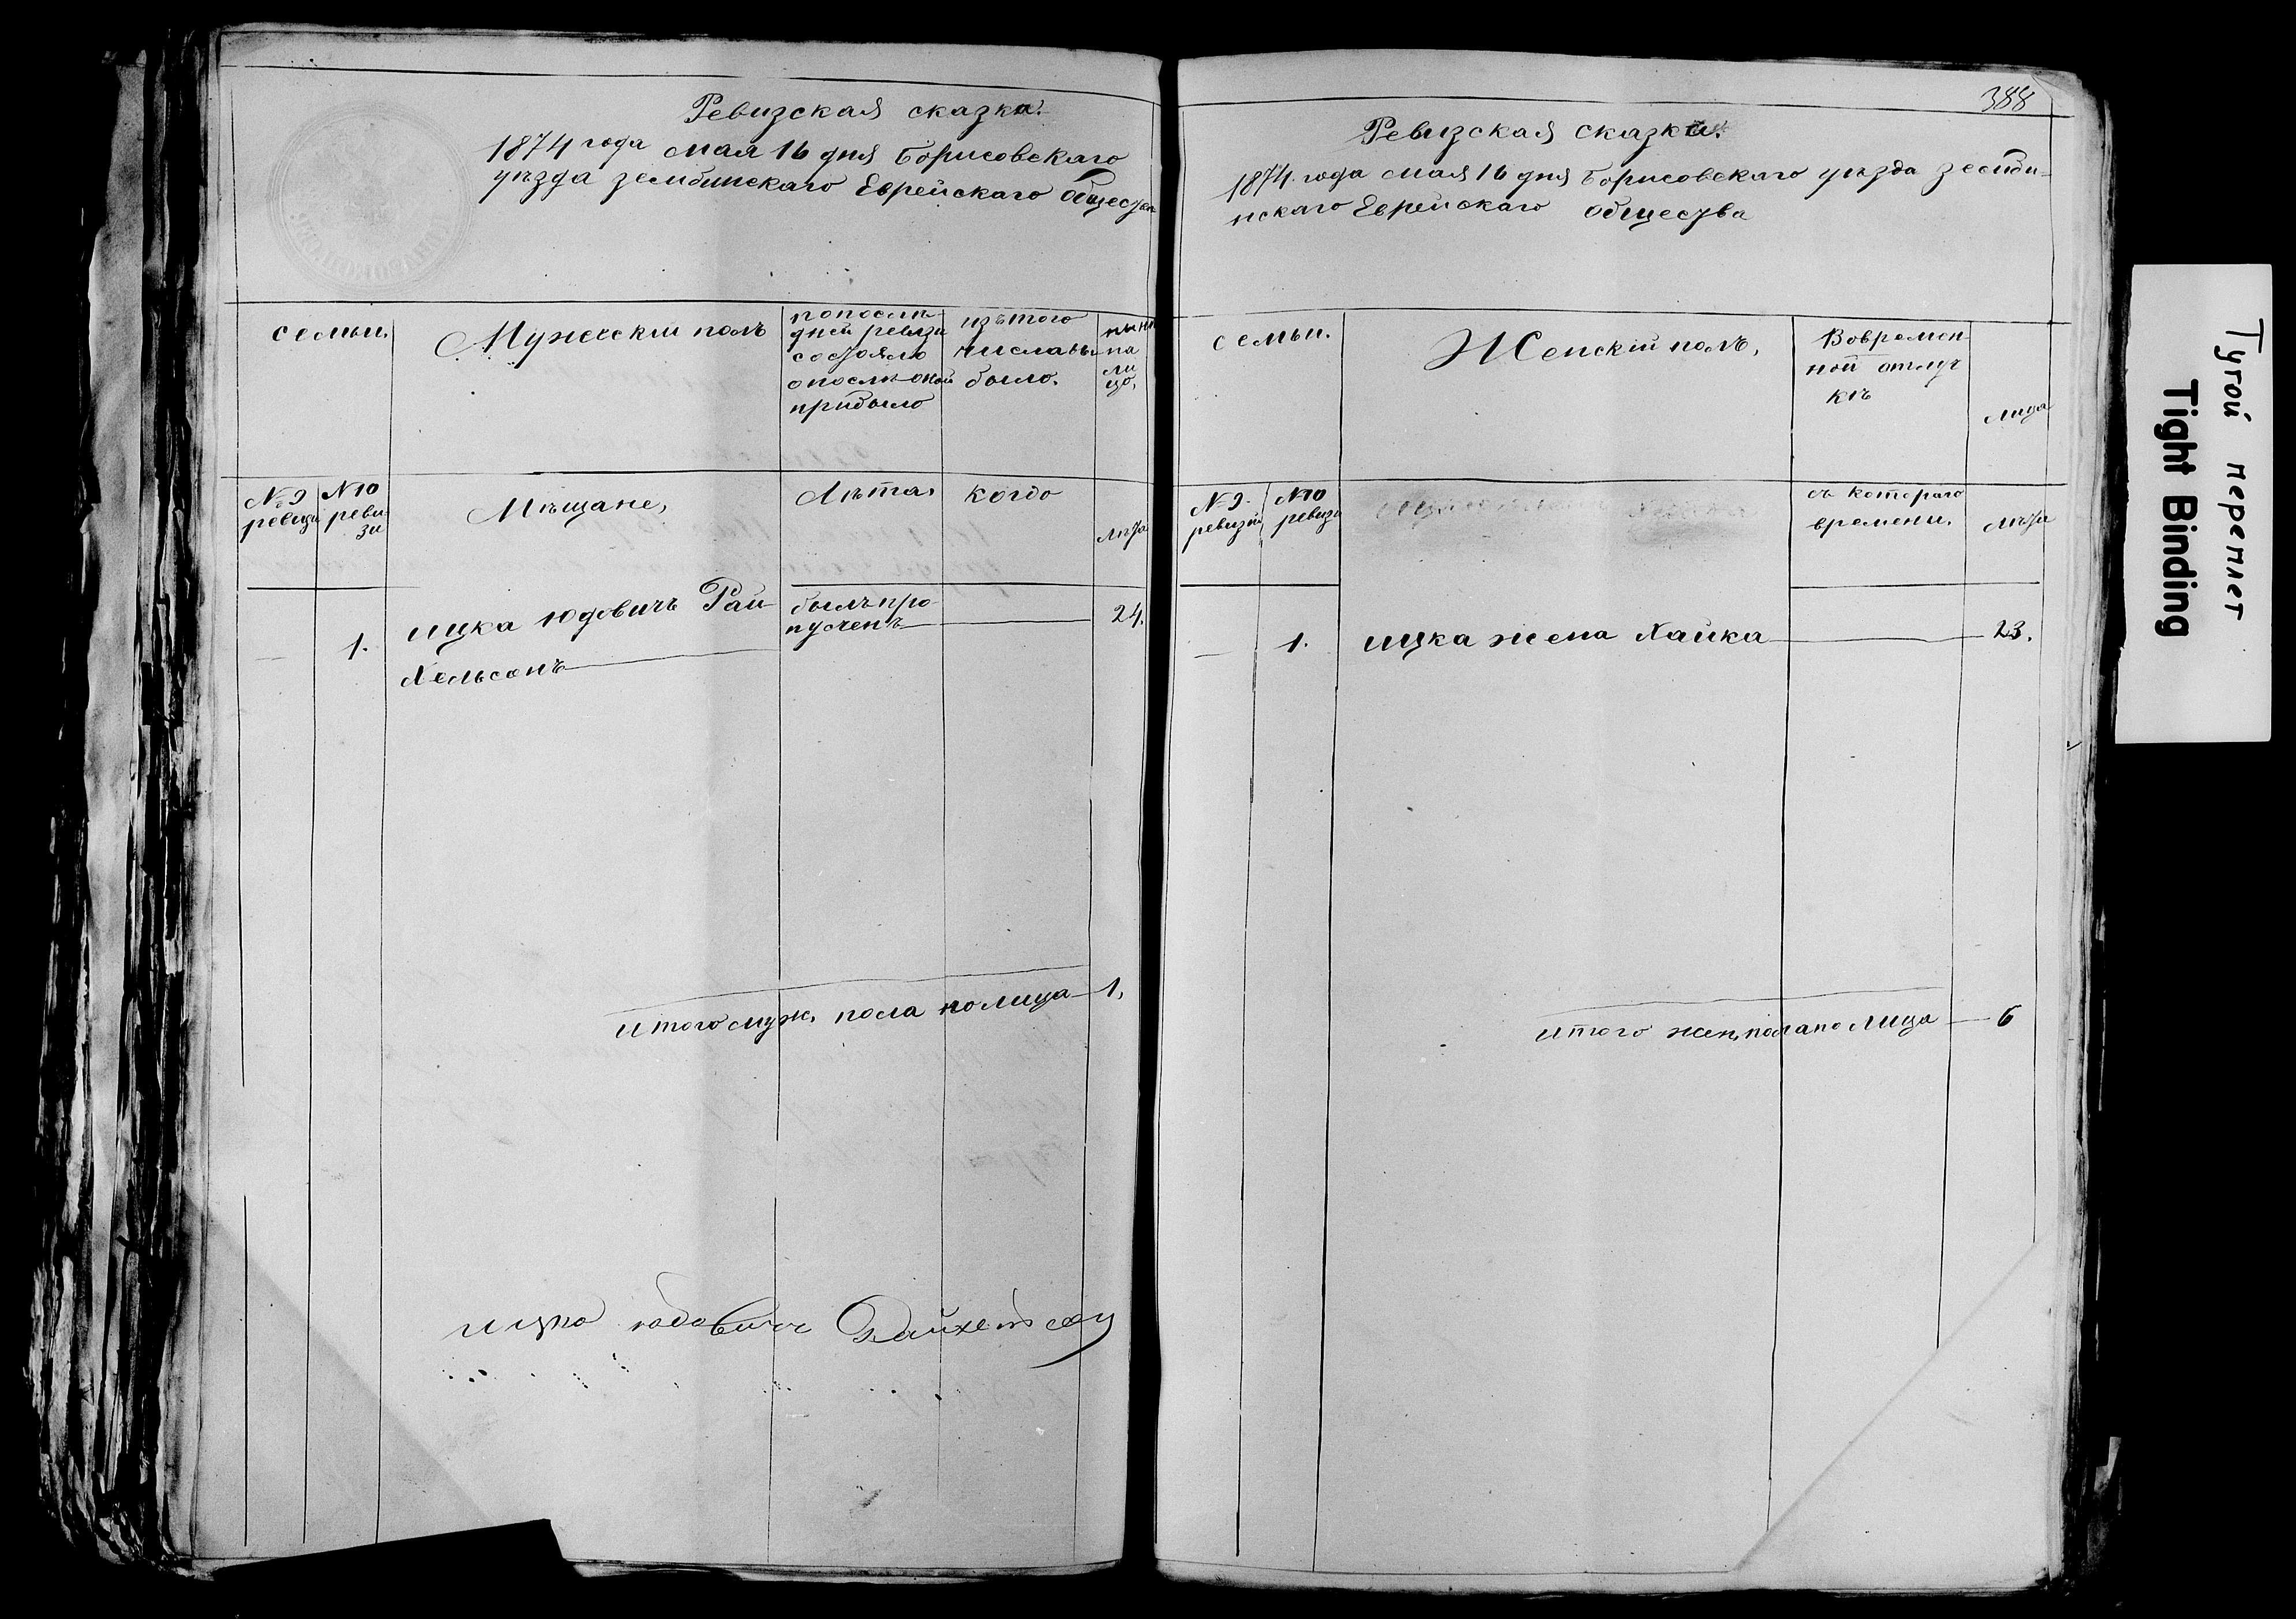 Ревизская сказка.
1874 года мая 16 дня Борисовскаго
уѣзда зембинскаго Еврейскаго Общества
семьи.
Мужескій полъ
попослѣ
дней ревизи
состояло
опослѣ оной
прибыло
изъ того
числа вы
было.
нынѣ
на
ли
цо,
№ 9
ревизи
N 10
реви
зи
Мѣщане,
Лѣта,
когдо
лѣта
1.
ицка Юдовичъ Рай
хельсонъ
былъ про
пущенъ
24.
итого муж. пола нолица 1,
ицко юдовичъ Райхельсон
388
Ревизская сказка.
1874 года мая 16 дня Борисовскаго уѣзда земби
нскаго Еврейскаго общества
семьи.
Женскій полъ,
Вовремен
ной отлуч
кѣ
лица
N 9.
ревизіи
N10
ревизи
съ котораго
времени.
лѣта
1.
ицка жена Хайка
23.
итого жен, пола по лица 6
Тугой переплет
Tight Binding